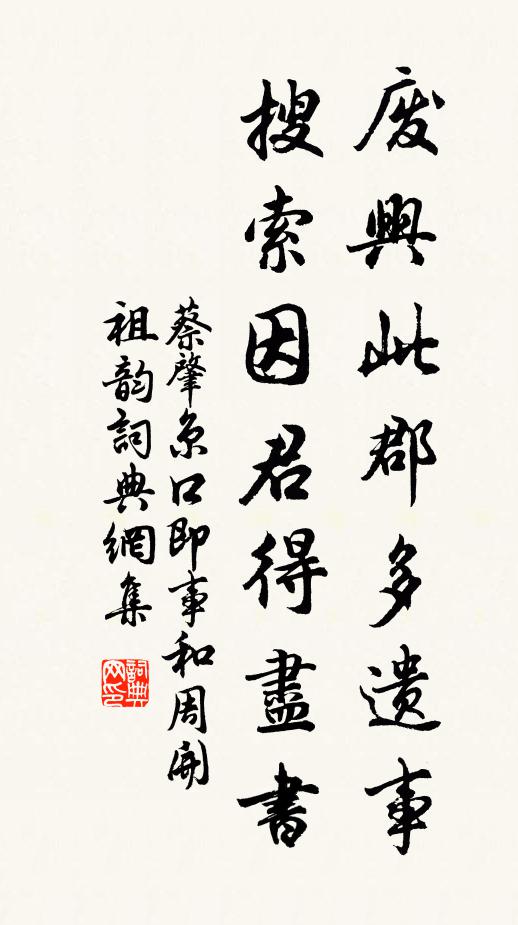 废興此郡多遗事
搜索因君得盡書
蔡肇京口即事和周開
祖韵詞典網集
詞典网印